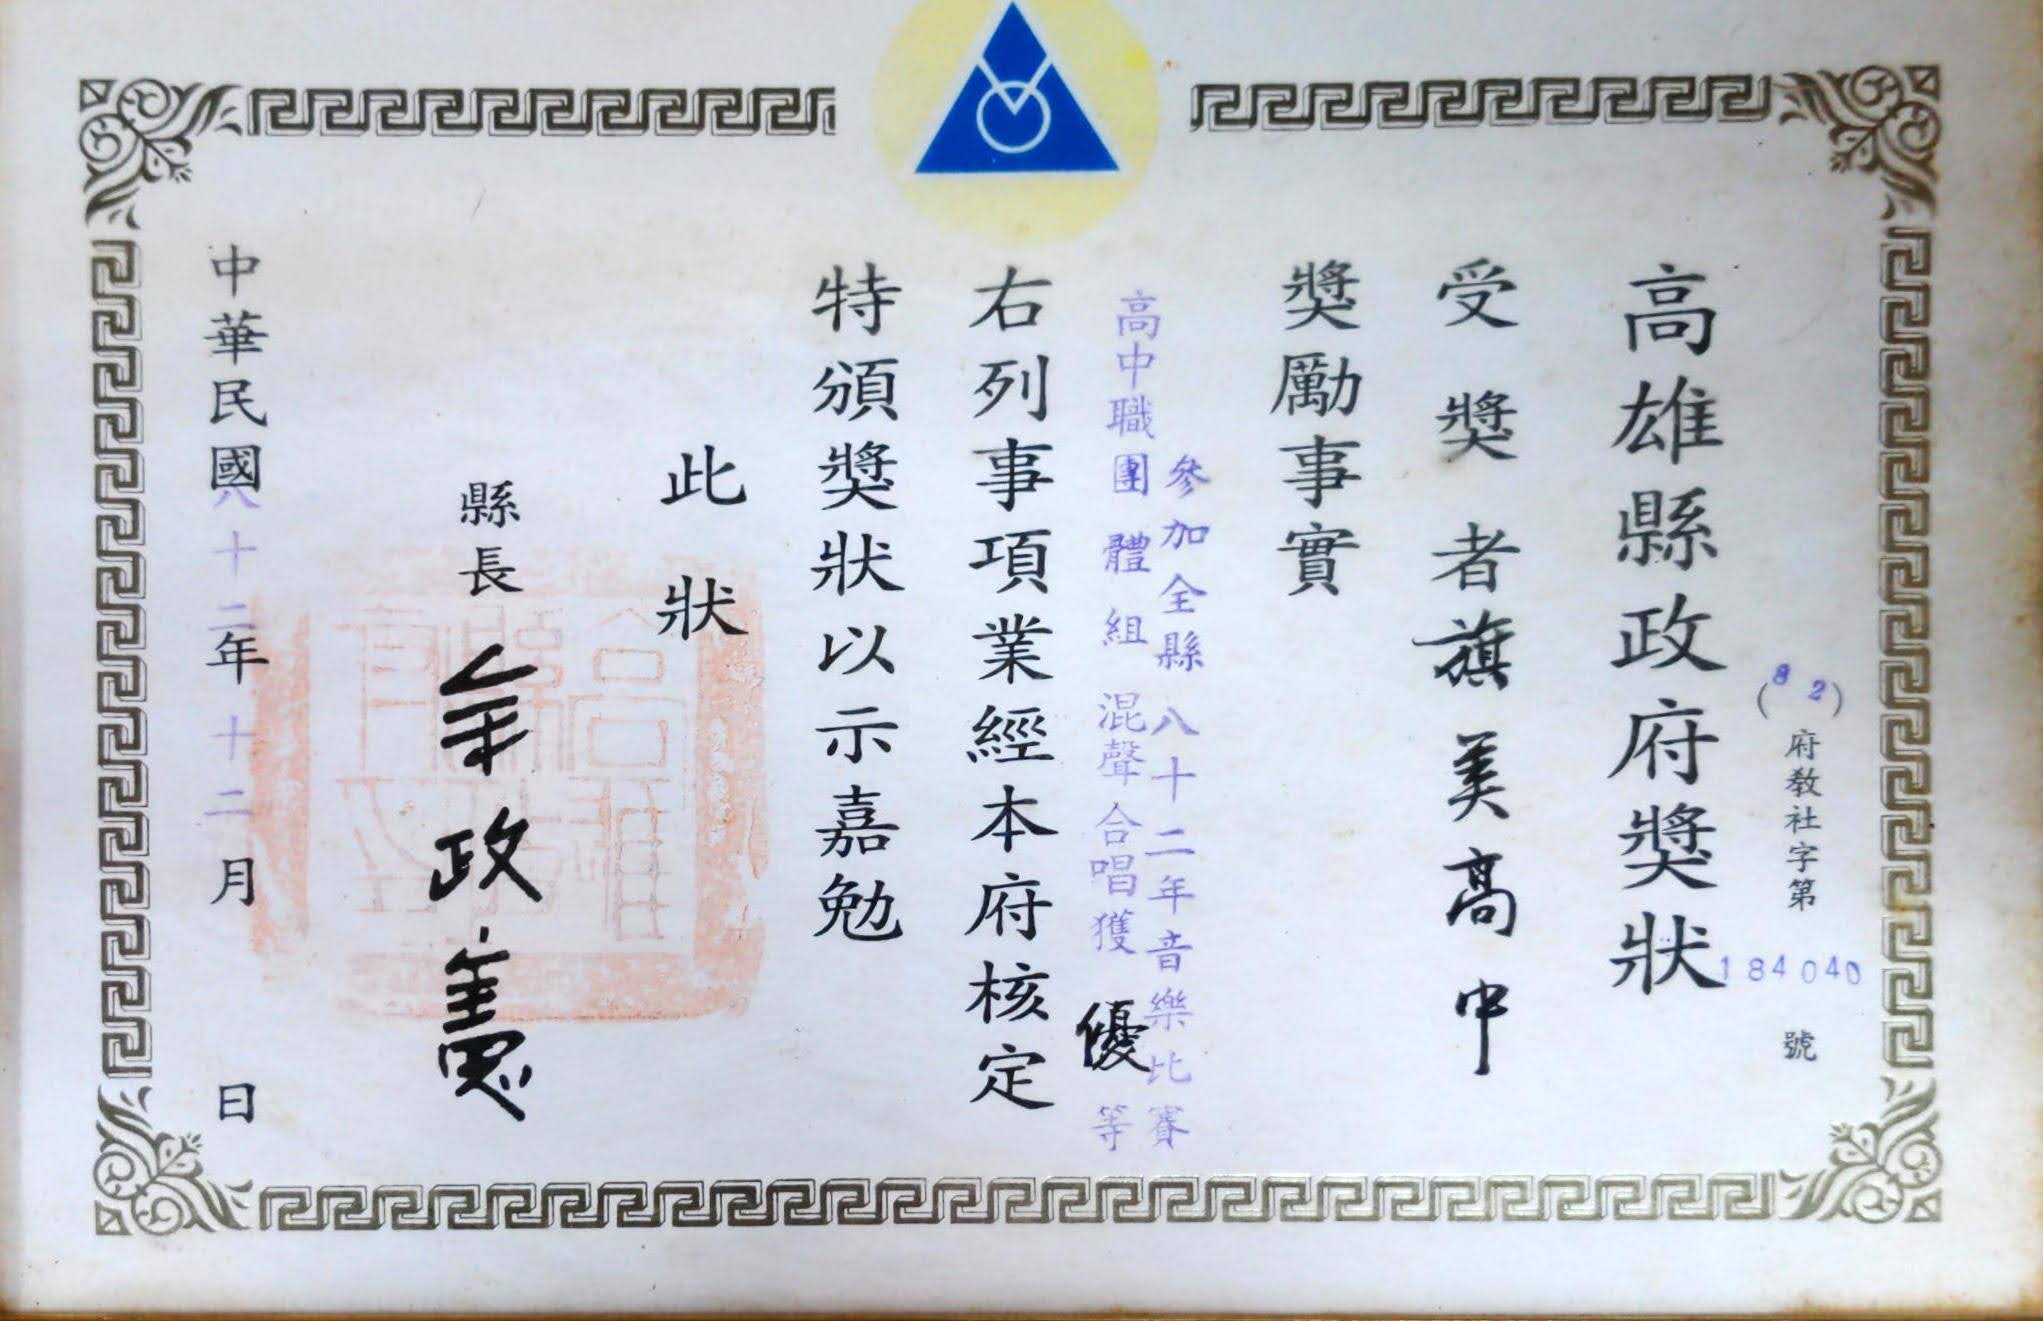 高雄縣政府獎狀
(82)府教社字第184040號
受獎者旗美高中
獎勵事實
參加全縣八十二年音樂比賽
高中職團體組混聲合唱獲優等
右列事項業經本府核定
特頒獎狀以示嘉勉
此狀
縣長余政憲
中華民國八十二年十二月日